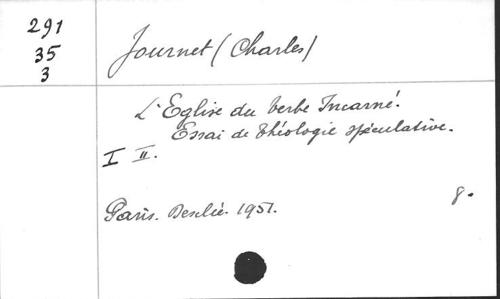 291
35
3
Journet (Charles)
L'Eglise du Verbe Incarné.
Essai de théologie spéculative.
I II.
Paris. Desclée. 1951.
8.